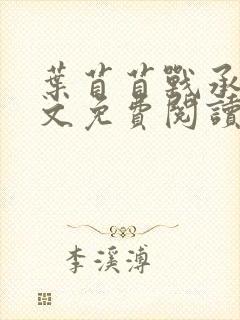 葉苜苜戰承
文免費閱讀
李溪溥